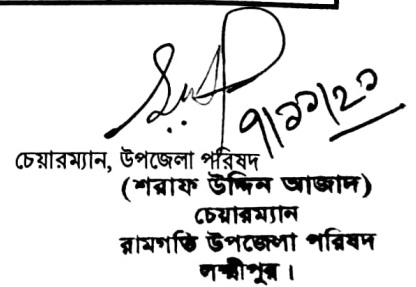 ৭/১১/২১
চেয়ারম্যান, উপজেলা পরিষদ
(শরাফ উদ্দিন আজাদ)
চেয়ারম্যান
রামগতি উপজেলা পরিষদ
লক্ষ্মীপুর।